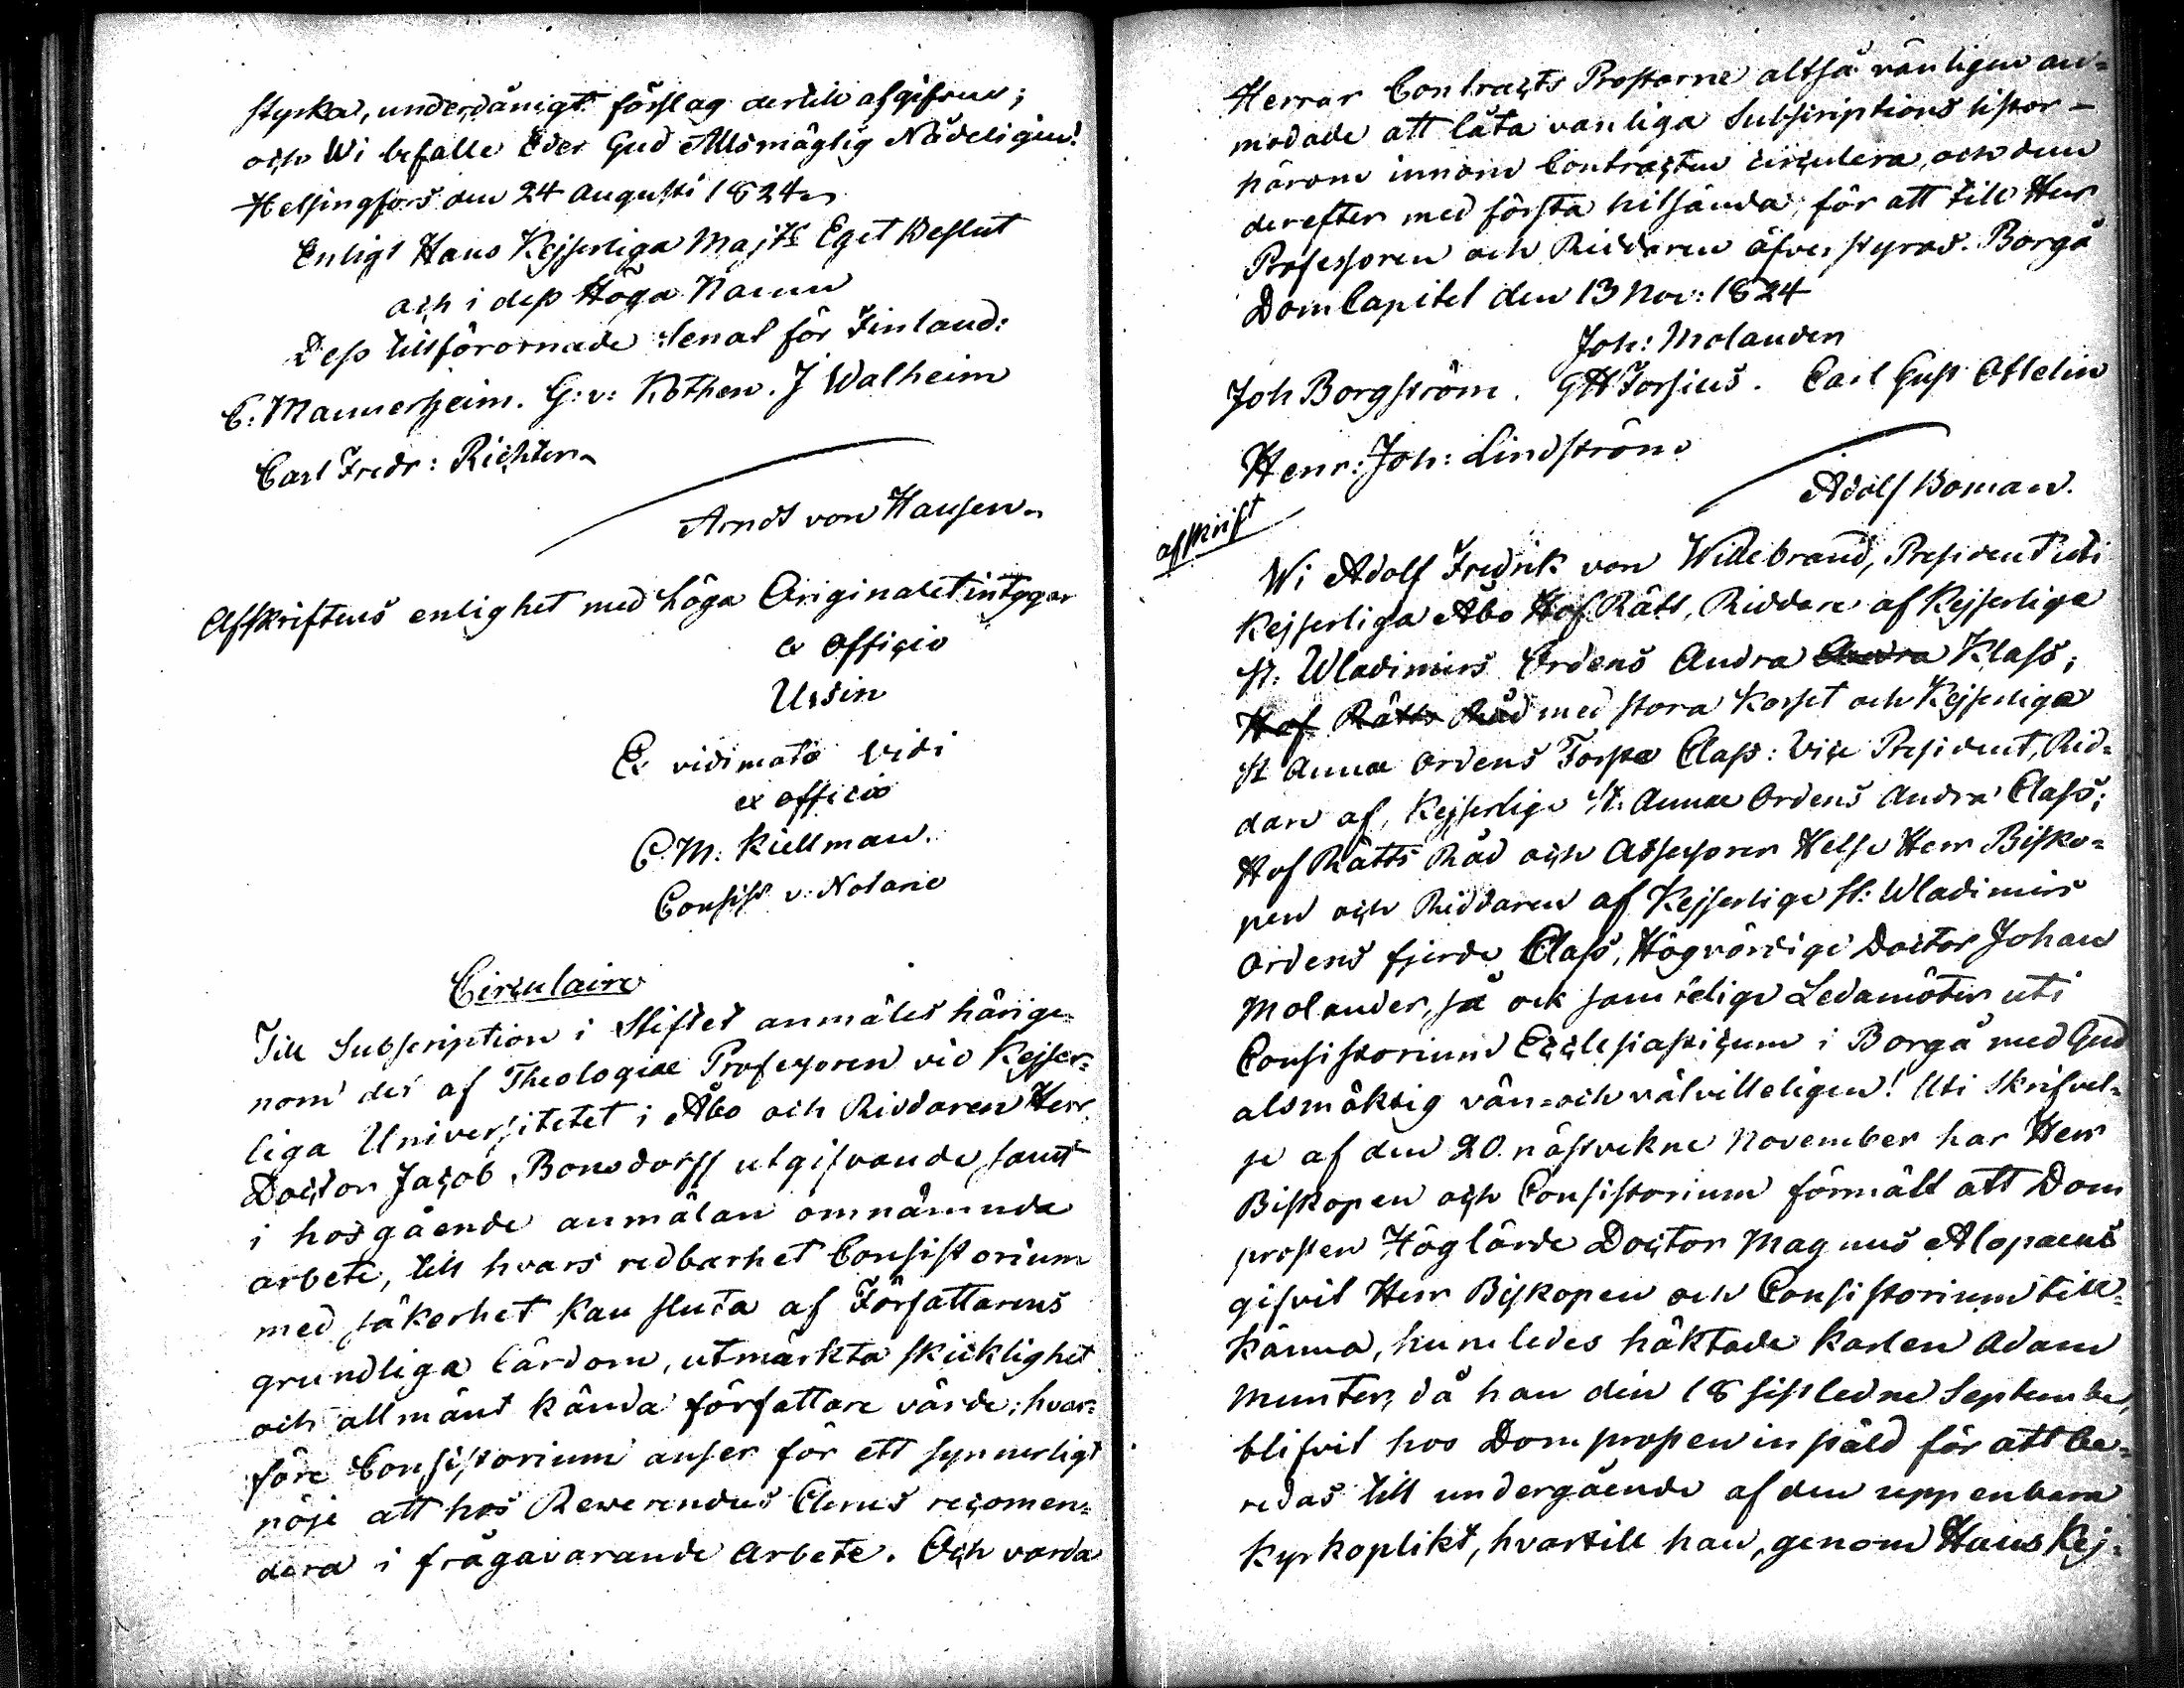 styrka, underdånigt förslag dertill afgifven;
och Wi befalle Eder Gud Allsmägtig Nådeligen!
Helsingfors den 24 Augusti 1824.
Enligt Hans Kejserliga Maj:ts Eget Beslut
och i dess Höga Namn
Dess tillförornade Senat för Finland:
C. Mannerheim. G: v: Kothen. J Walheim
Carl Fredr: Richter.
Arndt von Hausen.
Afskriftens enlighet med höga Originalet intygar
ex officio
Ursin
Ex vidimato vidi
ex officio
C. M. Kiellman.
Consist v. Notarie
Circulaire
Till Subscription i Stiftet anmäles härige=
nom det af Theologiae Professoren vid Kejser=
liga Universitetet i Åbo och Riddaren Herr
Doctor Jacob Bonsdorff utgifvande samt
i hosgående anmälan omnämnda
arbete, till hvars redbarhet Consistorium
med säkerhet kan sluta af Författarens
grundliga lärdom, utmärkta skicklighet
och allmänt kända författare värde; hvar=
före Consistorium anser för ett synnerligt
nöje att hos Rewerendus Clerus recomen=
dera i frågavarande Arbete. Och varda
Herrar Contracts Prostarne altså vänligen an=
modade att låta vanliga Subscriptions listor -
härom innom Contracten circulera, och dem
derefter med första hitsända, för att till Herr
Professoren och Riddaren öfverstyras. Borgå
Dom Capitel den 13 Nov: 1824
Joh: Molander
Joh Borgström. GH Forsius. Carl Gust Ottelin
Henr: Joh: Lindström
Adolf Boman.
Afskrift
Wi Adolf Fredrik von Willebrand, President uti
Kejserliga Åbo Hof Rätt, Riddare af Kejserlige
St. Wladimirs Ordens Andra Andra Klass;
Hof Rätts Råd med stora Korset och Kejserliga
St Annae Ordens Första Class: Vice President, Rid=
dare af, Kejserlige St. Annae Ordens Andra Class;
Hof Rätts Råd och Assessorer Helse Herr Bisko=
pen och Riddaren af Kejserlige St. Wladimirs
Ordens fjerde Class, Högvördige Doctor Johan
Molander, så ock samtelige Ledamöter uti
Consistorium Ecclesiasticum i Borgå med Gud
alsmäktig vän= och välvilleligen! Uti Skrifvel=
se af den 20. nästvekne November har Herr
Biskopen och Consistorium förmält att Dom
prosten Höglärde Doctor Magnus Alopaeus
gifvit Herr Biskopen och Consistorium till=
känna, huruledes häktade karlen Adam
Munter, då han den 18 sistledne September,
blifvit hos Domprosten inställd för att be=
redas till undergående af den uppenbara
Kyrkoplikt, hvartill han, genom Hans Kej=